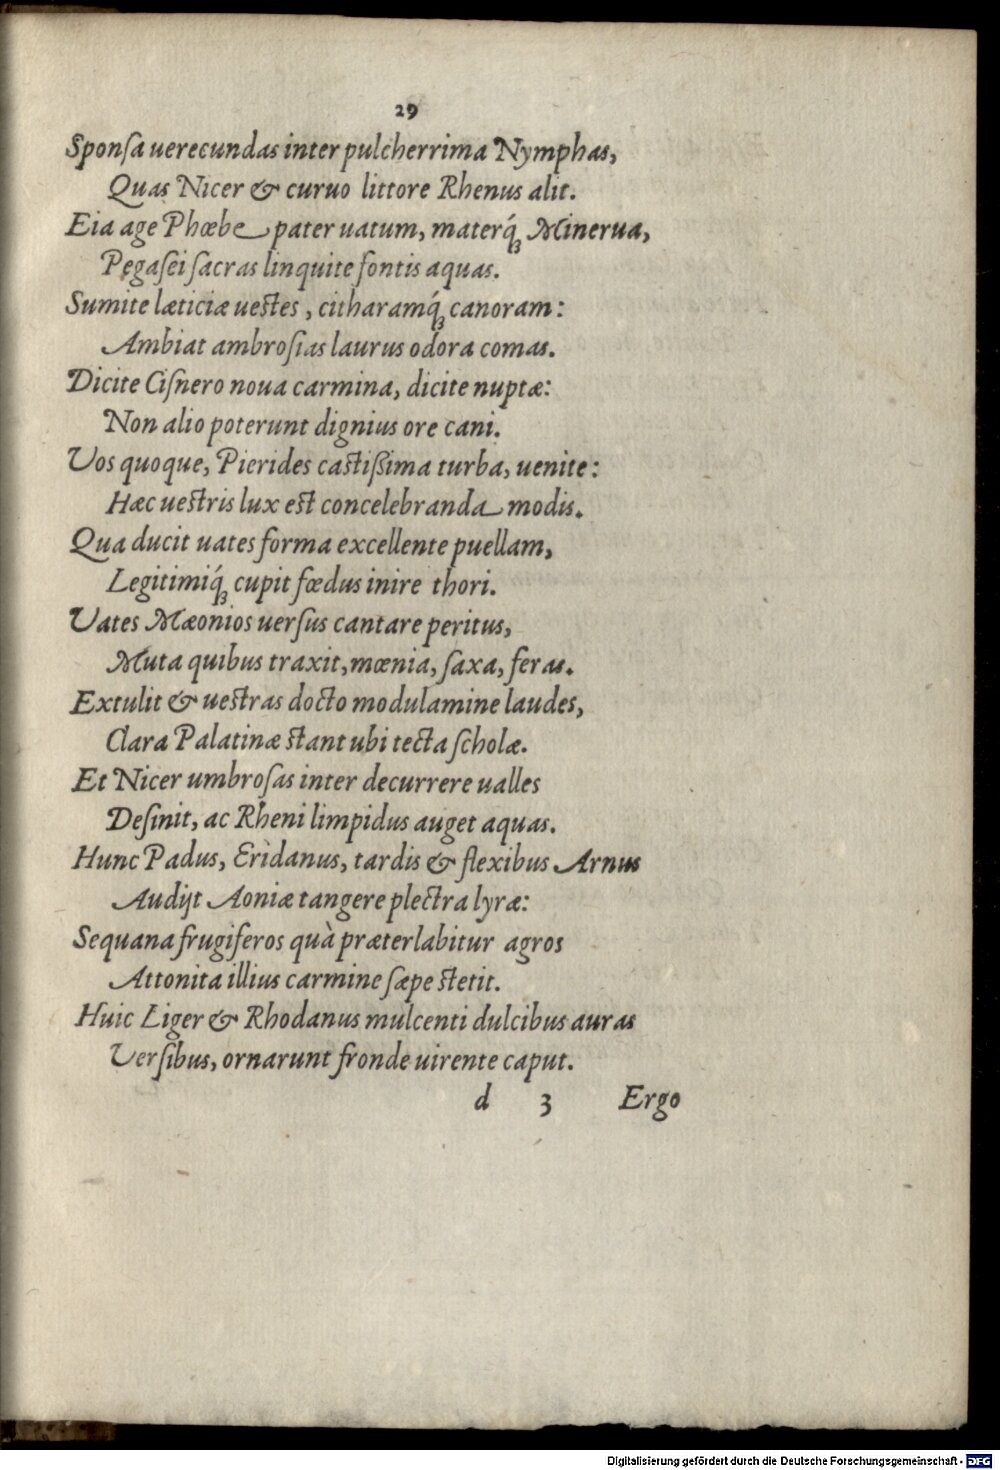 29
Sponſa uerecundas inter pulcherrima Nymphas,
Quas Nicer & curuo littore Rhenus alit.
Eia age Phœbe pater uatum, materq́ꝫ Minerua,
Pegaſei ſacras linquite fontis aquas.
Sumite læticiæ ueſtes, citharamq́ꝫ canoram:
Ambiat ambroſias laurus odora comas.
Dicite Ciſnero noua carmina, dicite nuptæ:
Non alio poterunt dignius ore cani.
Vos quoque, Pierides caſtißima turba, uenite:
Hæc ueſtris lux eſt concelebranda modis.
Qua ducit uates forma excellente puellam,
Legitimiq́ꝫ cupit fœdus inire thori.
Vates Mæonios uerſus cantare peritus,
Muta quibus traxit, mœnia, ſaxa, feras.
Extulit & ueſtras docto modulamine laudes,
Clara Palatinæ ſtant ubi tecta ſcholæ.
Et Nicer umbroſas inter decurrere ualles
Deſinit, ac Rheni limpidus auget aquas.
Hunc Padus, Eridanus, tardis & flexibus Arnus
Audijt Aoniæ tangere plectra lyræ:
Sequana frugiferos quà præterlabitur agros
Attonita illius carmine ſæpe ſtetit.
Huic Liger & Rhodanus mulcenti dulcibus auras
Verſibus, ornarunt fronde uirente caput.
d 3 Ergo
Digitalisierung gefördert durch die Deutsche Forschungsgemeinschaft - DFG